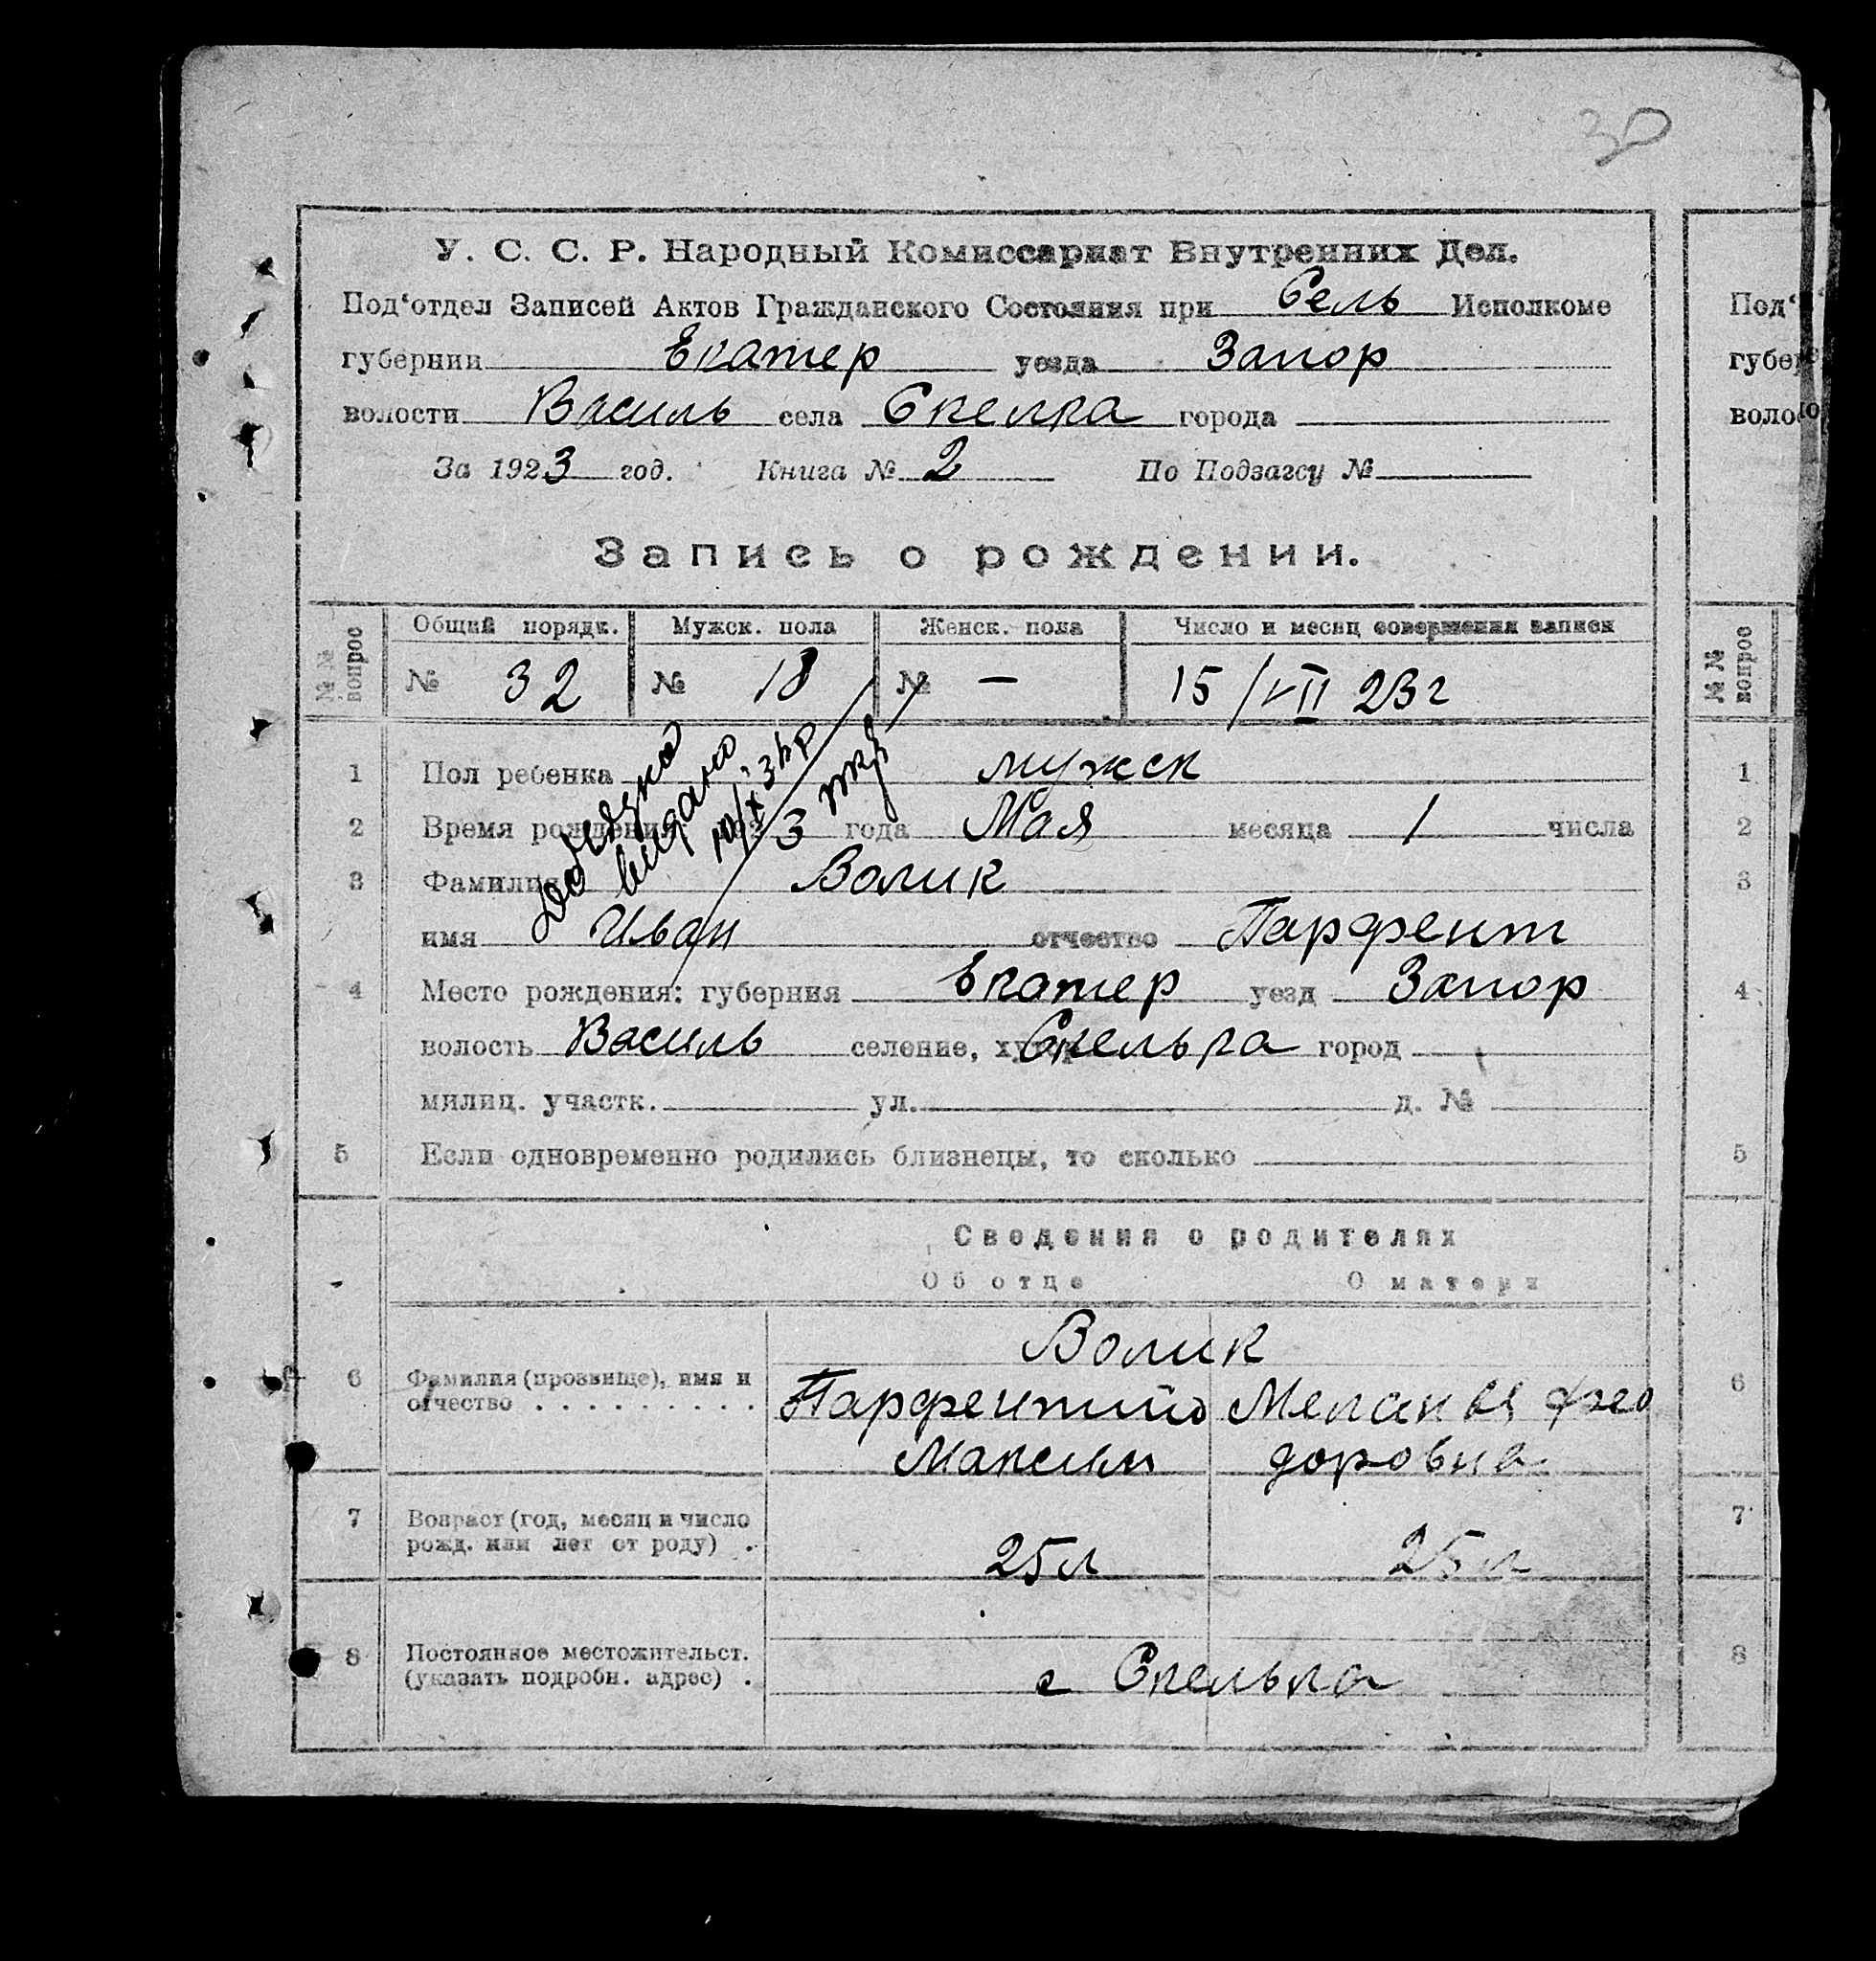 30
У. С. С. Р. Народный Комиссариат Внутренних Дел.
Под'отдел Записей Актов Гражданского Состояния при Сель Исполкоме
губернии Екатер уезда Запор
волости Василь села Скелка города
За 1923 год. Книга № 2 По Подзагсу №
Запись о рождении.
№ № вопрос
Общий порядк. Мужск. пола Женск. пола Число и месяц совершения записи
№ 32 № 18 № — 15/VII 23 г
1 Пол ребенка мужск
2 Время рождения: 3 года Мая месяца 1 числа
3 Фамилия Волик
имя Иван отчество Парфент
4 Место рождения: губерния Екатер уезд Запор
волость Василь селение, Скелька город
милиц. участк. ул. д. №
5 Если одновременно родились близнецы, то сколько
видано
Сведения о родителях
Об отце О матери
Волик
6 Фамилия (прозвище), имя и
отчество . . . . . . . . .
Парфентий Мелания Фео
Максим доровна
7 Возраст (год, месяц и число
рожд. или лет от роду) .
25 л 25 л
8 Постоянное местожительст.
(указать подробн. адрес) .
с Скелька
Под'
губер
воло
№ № вопрос
1
2
3
4
5
6
7
8